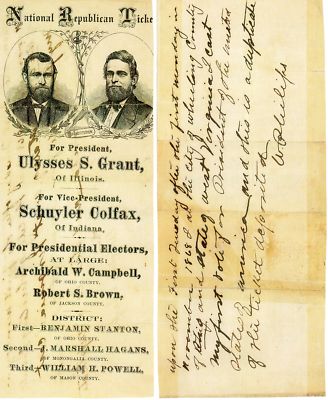 National Republican Ticke
For President,
Ulysses S. Grant,
Of Illinois.
For Vice-President,
Schuyler Colfax,
Of Indiana.
For Presidential Electors,
AT LARGE:
Archibald W. Campbell,
OF OHIO COUNTY.
Robert S. Brown,
OF JACKSON COUNTY.
DISTRICT:
First—BENJAMIN STANTON,
OF OHIO COUNTY.
Second—J. MARSHALL HAGANS,
OF MONONGALIA COUNTY.
Third—WILLIAM H. POWELL,
OF MASON COUNTY.
upon the first Tuesday after the first monday in
November 1868 at the city of wheeling County
of Ohio and state of west Virginia I cast
my first vote for President of the united
states of america and this is a duplicate
of the ticket deposited
W Philips